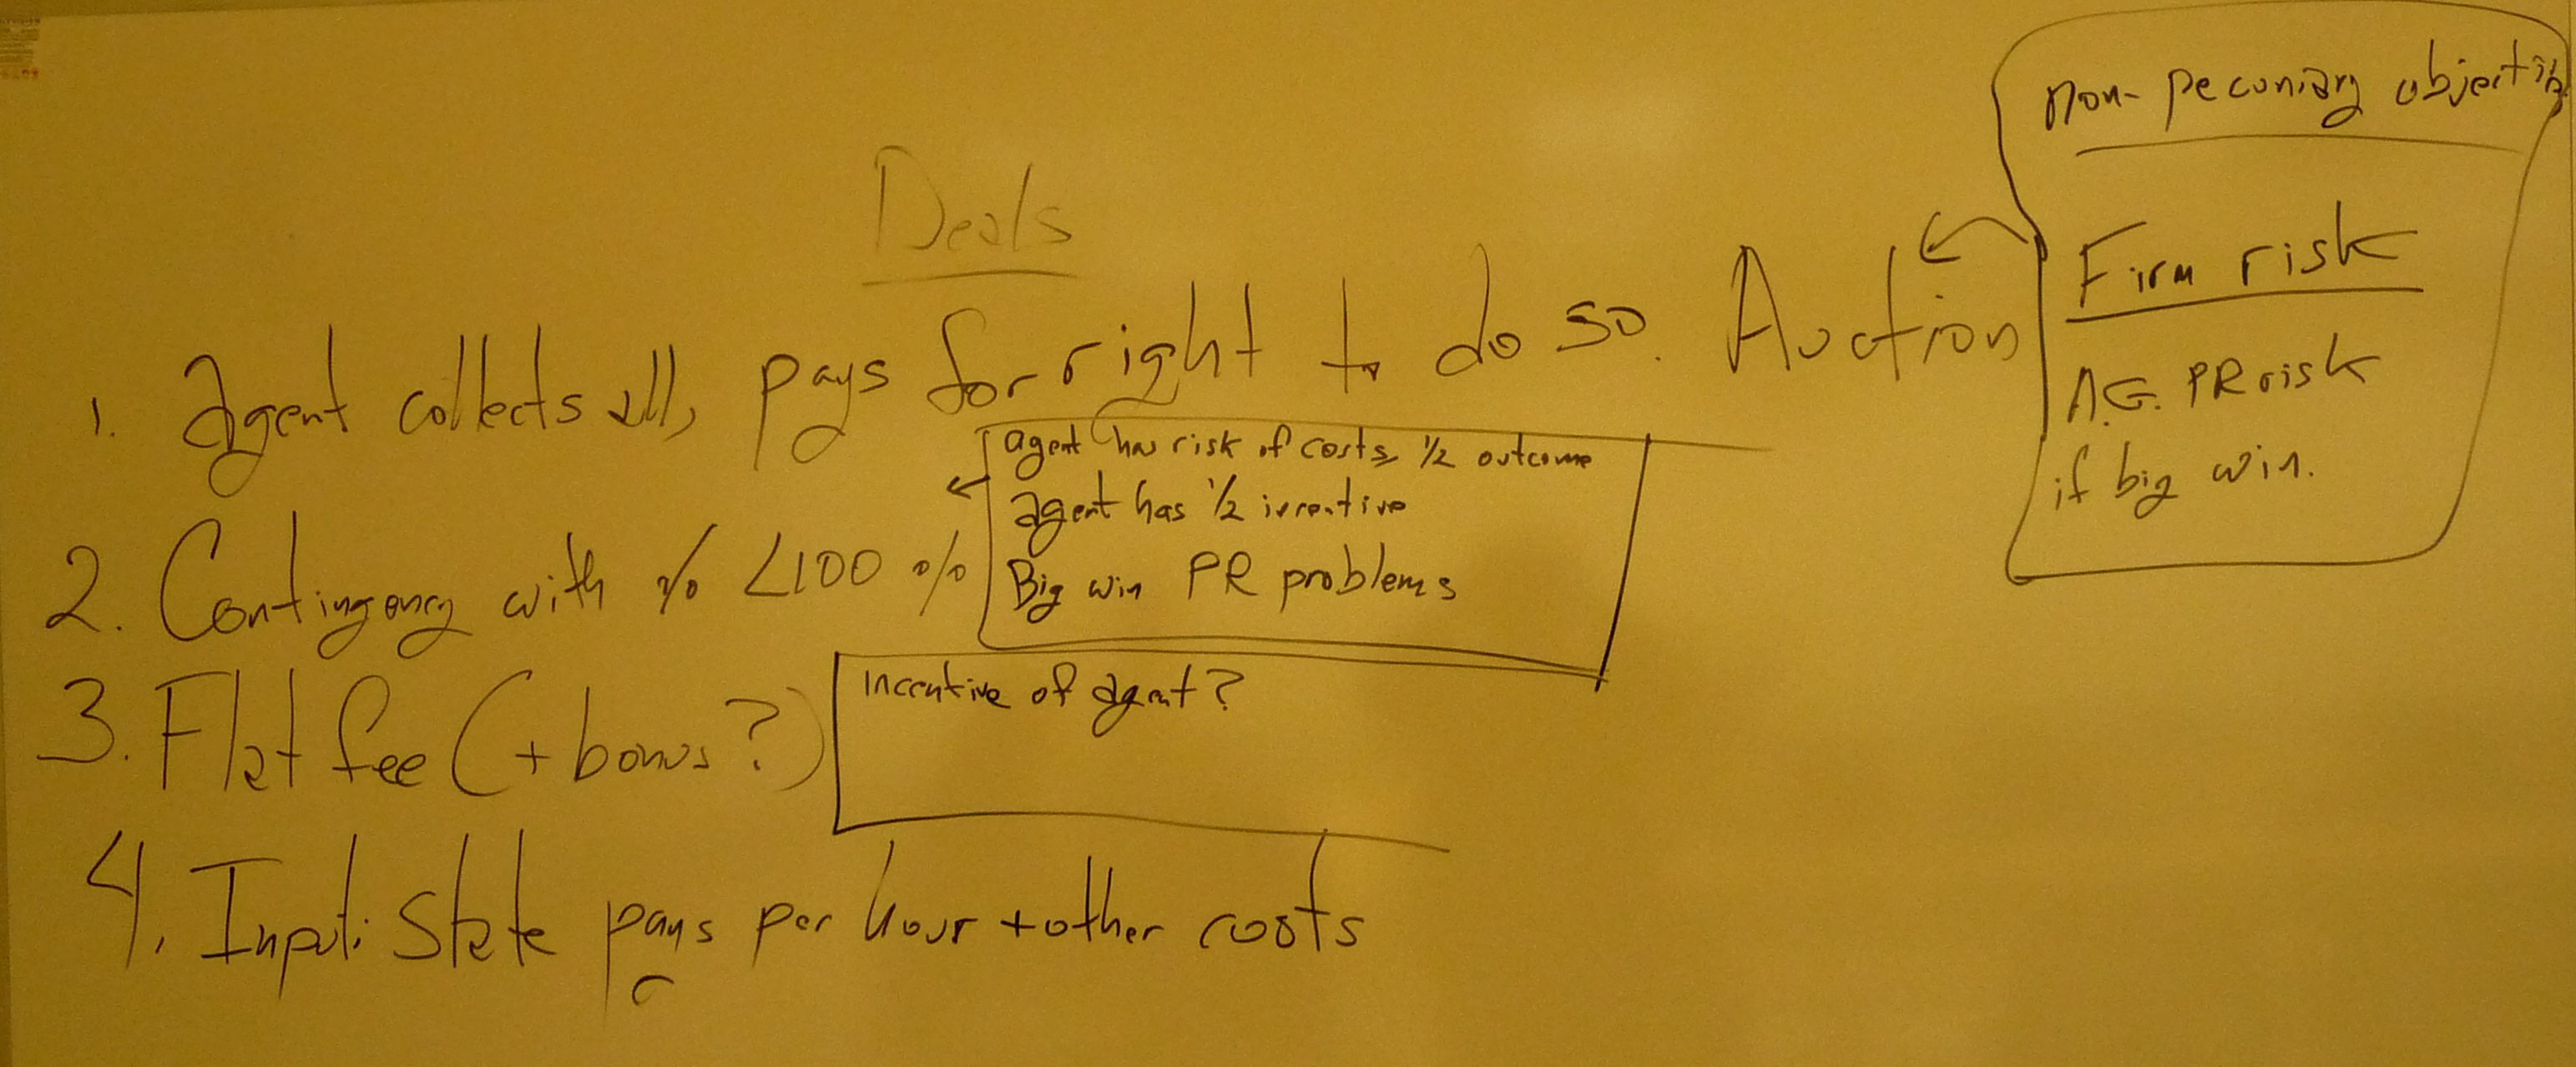 Deals
1. Agent collects all, pays for right to do so. Auction
non-pecuniary
Firm risk
A.G. PR risk
if big win.
2. Contingency with % <100 %
agent has risk of costs, 1/2 outcome
agent has 1/2 incentive
Big win PR problems
3. Flat fee (+ bonus?)
Incentive of agent?
4. Input: State pays per hour + other costs